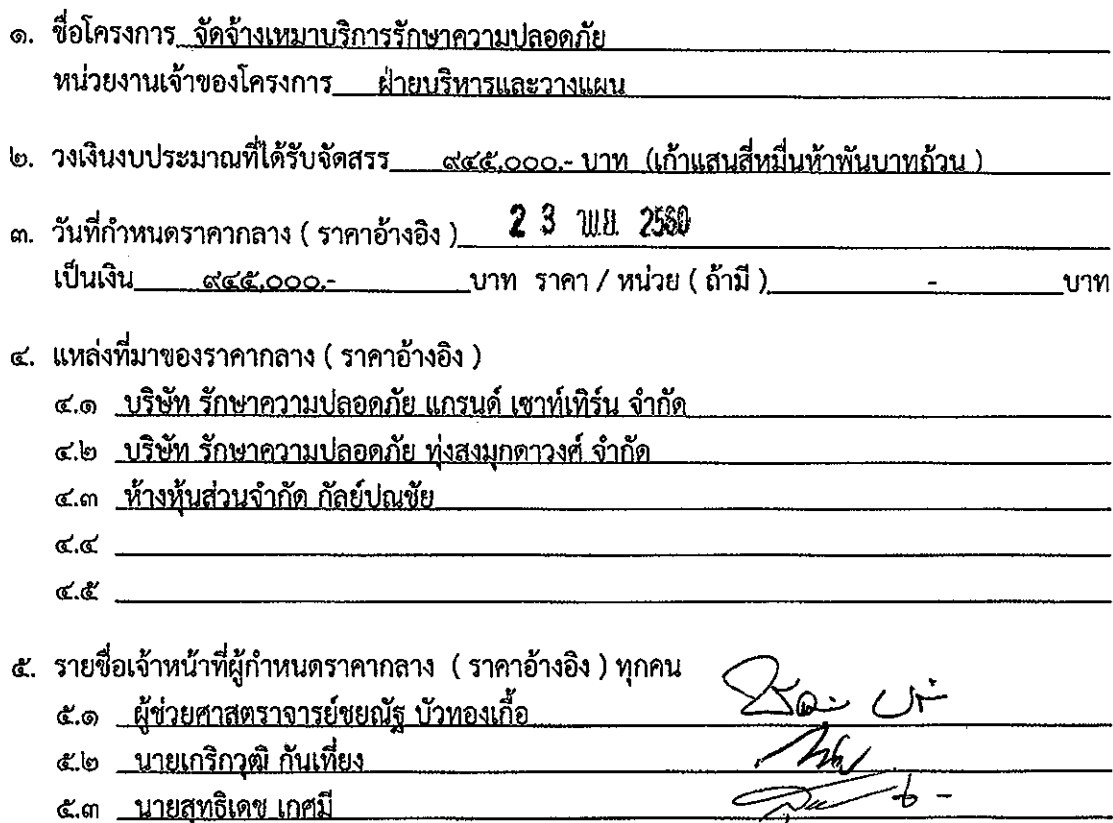 ๑. ชื่อโครงการ จัดจ้างเหมาบริการรักษาความปลอดภัย
หน่วยงานเจ้าของโครงการ ฝ่ายบริหารและวางแผน
๒. วงเงินงบประมาณที่ได้รับจัดสรร ๙๔๕,๐๐๐.- บาท (เก้าแสนสี่หมื่นห้าพันบาทถ้วน )
๓. วันที่กำหนดราคากลาง ( ราคาอ้างอิง ) 2 3 พ.ย. 2560
เป็นเงิน ๙๔๕,๐๐๐.- บาท ราคา / หน่วย ( ถ้ามี ) - บาท
๔. แหล่งที่มาของราคากลาง ( ราคาอ้างอิง )
๔.๑ บริษัท รักษาความปลอดภัย แกรนด์ เซาท์เทิร์น จำกัด
๔.๒ บริษัท รักษาความปลอดภัย ทุ่งสงมุกดาวงศ์ จำกัด
๔.๓ ห้างหุ้นส่วนจำกัด กัลย์ปณชัย
๔.๔
๔.๕
๕. รายชื่อเจ้าหน้าที่ผู้กำหนดราคากลาง ( ราคาอ้างอิง ) ทุกคน
๕.๑ ผู้ช่วยศาสตราจารย์ชยณัฐ บัวทองเกื้อ
๕.๒ นายเกริกวุฒิ กันเที่ยง
๕.๓ นายสุทธิเดช เกศมี